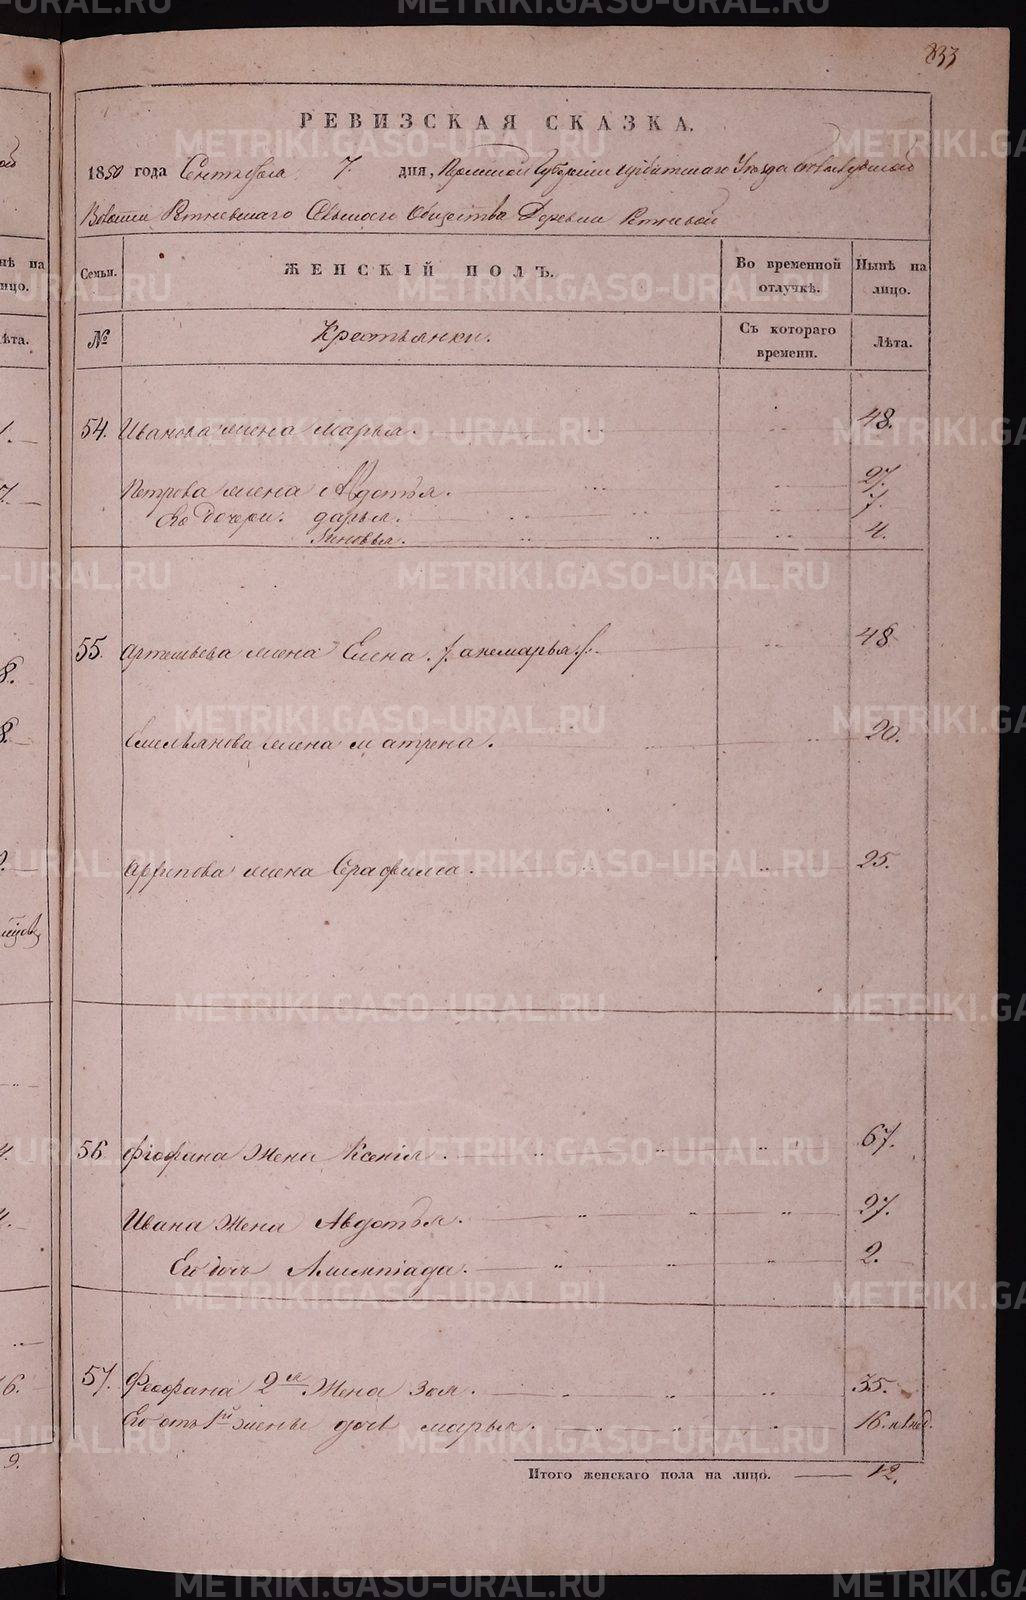 833
РЕВИЗСКАЯ СКАЗКА.
1850 года Сентября 7 дня, Пермской Губернии Ирбитскаго Уезда
Волости Ретневскаго Сельскаго Общества Деревни Ретневой
Семьи. ЖЕНСКІЙ ПОЛЪ. Во временной отлучкѣ. Нынѣ на лицо.
№ Крестьянки. Съ котораго времени. Лѣта.
54. Иванова жена Марья. 48.
Петрова жена Авдотья. 27.
Его дочери: дарья. 7.
Зиновья. 4.
55. Артемьева жена Елена /: анемарья :/ 48
Емельянова жена матрена. 20.
Архипова жена Серафима. 25.
56 Фіофана Жена Ксенія. 67.
Ивана Жена Авдотья. 27.
Его дочь Алимпіада. 2.
57. Феофана 2я Жена Зоя. 35.
Его отъ 1й жены дочь марья. 16.
Итого женскаго пола на лицо. 12.
METRIKI.GASO-URAL.RU